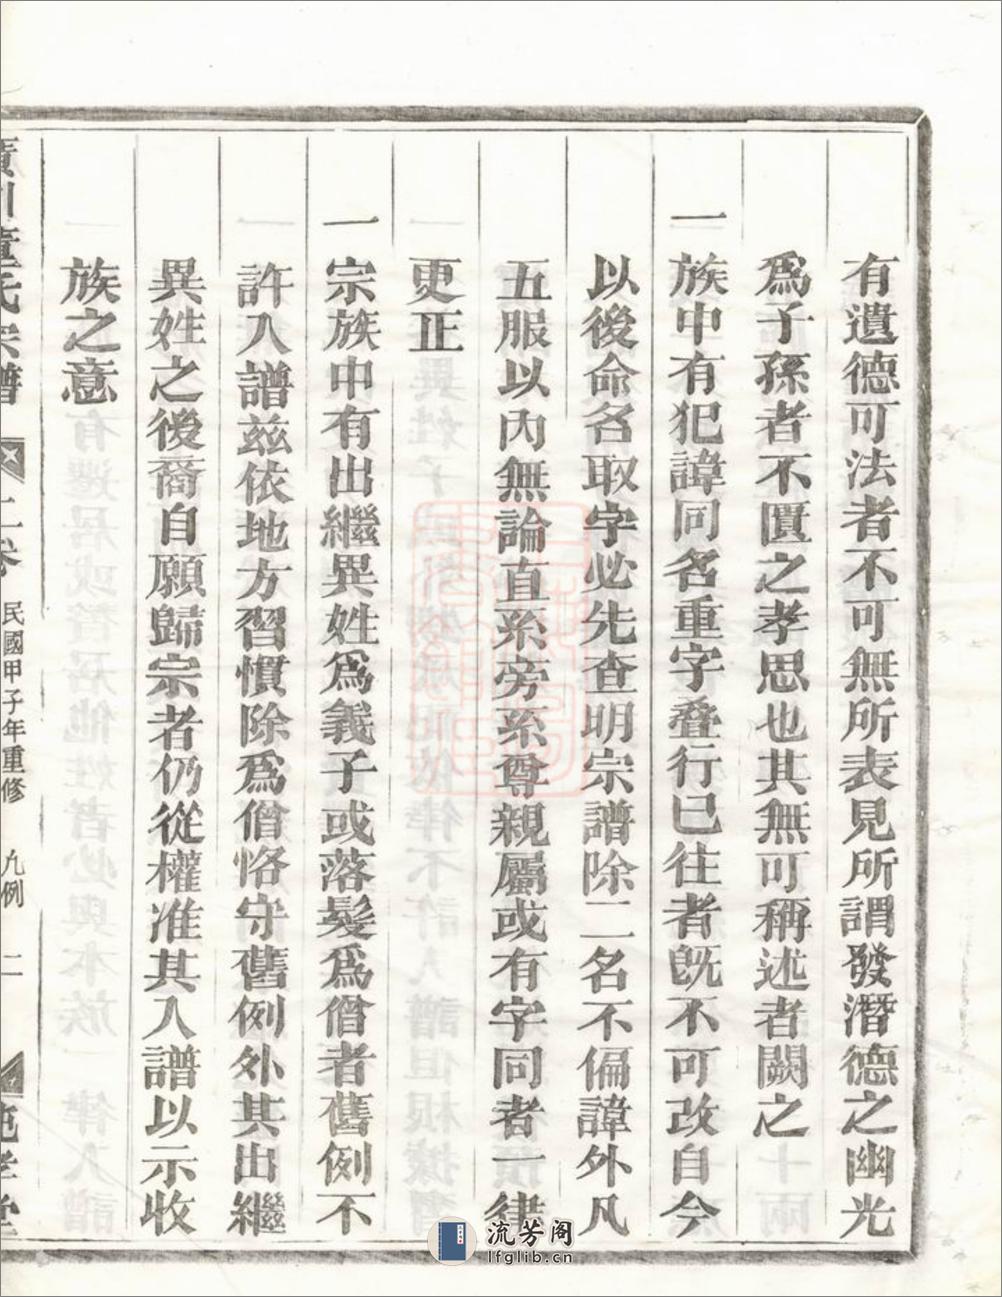 有遺德可法者不可無所表見所謂發潛德之幽光
爲子孫者不匱之孝思也其無可稱述者闕之
一族中有犯諱同名重字叠行已往者旣不可改自今
以後命名取字必先查明宗譜除二名不偏諱外凡
五服以內無論直系旁系尊親屬或有字同者一律
更正
一宗族中有出繼異姓爲義子或落髮爲僧者舊例不
許入譜兹依地方習慣除爲僧恪守舊例外其出繼
異姓之後裔自願歸宗者仍從權准其入譜以示收
族之意
廣川董氏宗譜 二卷 民國甲子年重修 凡例 二
流芳阁
lfglib.cn